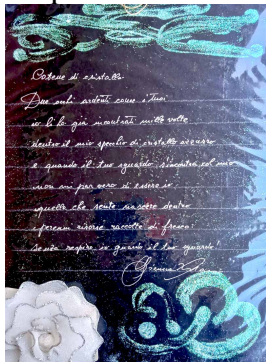 Catene di cristallo
Due occhi ardenti come i tuoi
io li ho già incontrati mille volte
dentro il mio specchio di cristallo
e quando il tuo sguardo s'incontra col mio
non mi par vero di essere io
quella che sente nascere dentro
rose raccolte di fresco
senza respiro io guardo il tuo sguardo